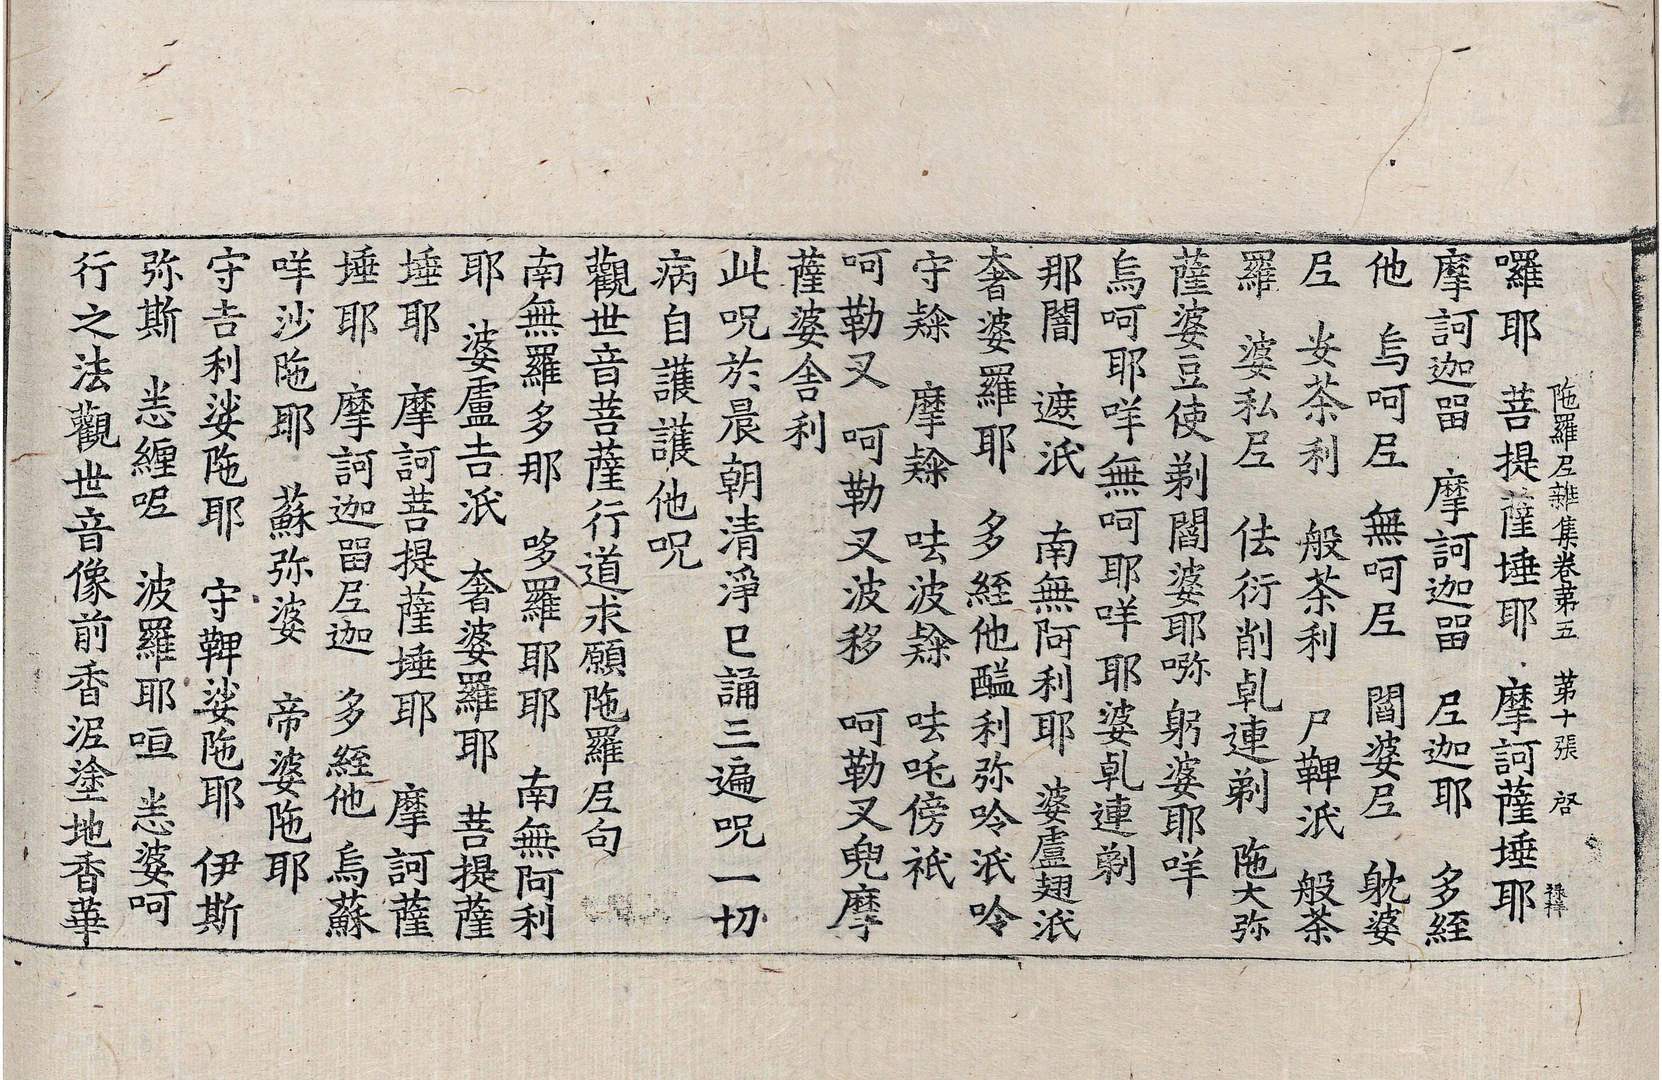 陁羅𡰱雜集卷苐五 苐十張 啓 祿祥
囉耶 菩提薩埵耶 摩訶薩埵耶
摩訶迦㽞 摩訶迦㽞 𡰱迦耶 多絰
他 烏呵𡰱 無呵𡰱 閻婆𡰱 躭婆
𡰱 安茶利 般茶利 尸鞞泜 般茶
羅 婆私𡰱 佉衍削乹連剃 陁大弥
薩婆豆使剃閻婆耶㖠 躬婆耶咩
烏呵耶咩無呵耶咩耶婆乹連剃
那闇 遮泜 南無阿利耶 婆盧翅泜
奢婆羅耶 多絰他醯利弥呤泜呤
守 摩 呿波 呿吒傍祇
呵勒叉 呵勒叉波移 呵勒叉兜摩
薩婆舍利
此呪於晨朝清淨已誦三遍呪一切
病自護護他呪
觀世音菩薩行道求願陁羅𡰱句
南無羅多那 哆羅耶耶 南無阿利
耶 婆盧吉泜 奢婆羅耶 菩提薩
埵耶 摩訶菩提薩埵耶 摩訶薩
埵耶 摩訶迦㽞𡰱迦 多絰他 烏蘇
咩沙陁耶 蘇弥婆 帝婆陁耶
守吉利娑陁耶 守鞞娑陁耶 伊斯
弥斯 恙纏呢 波羅耶咺 恙婆呵
行之法觀世音像前香泥塗地香華